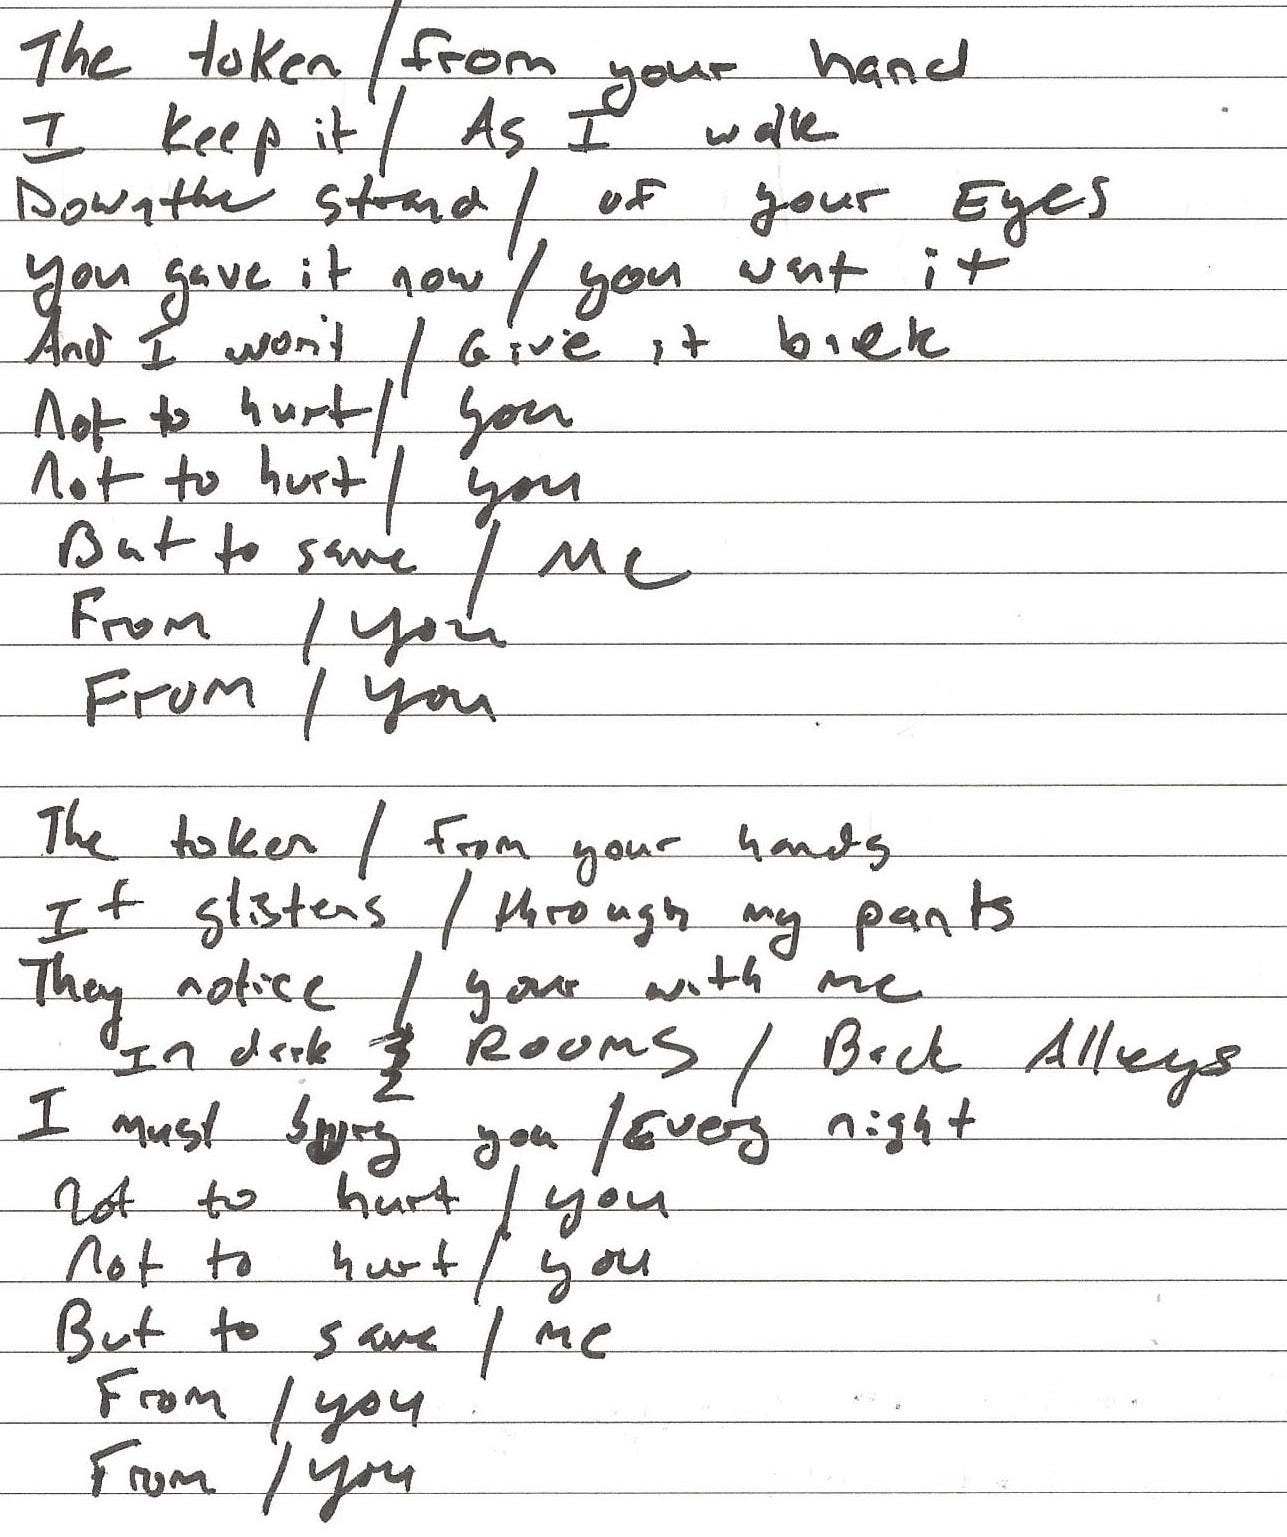 The token / from your hand
I keep it / As I walk
Down the strand / of your Eyes
you gave it now / you want it
And I won't / Give it back
Not to hurt / you
Not to hurt / you
But to save / Me
From / you
From / you
The token / From your hands
It glistens / through my pants
They notice / your with me
In dark Rooms / Back Alleys
I must bury you / Every night
not to hurt / you
Not to hurt / you
But to save / me
From / you
From / you